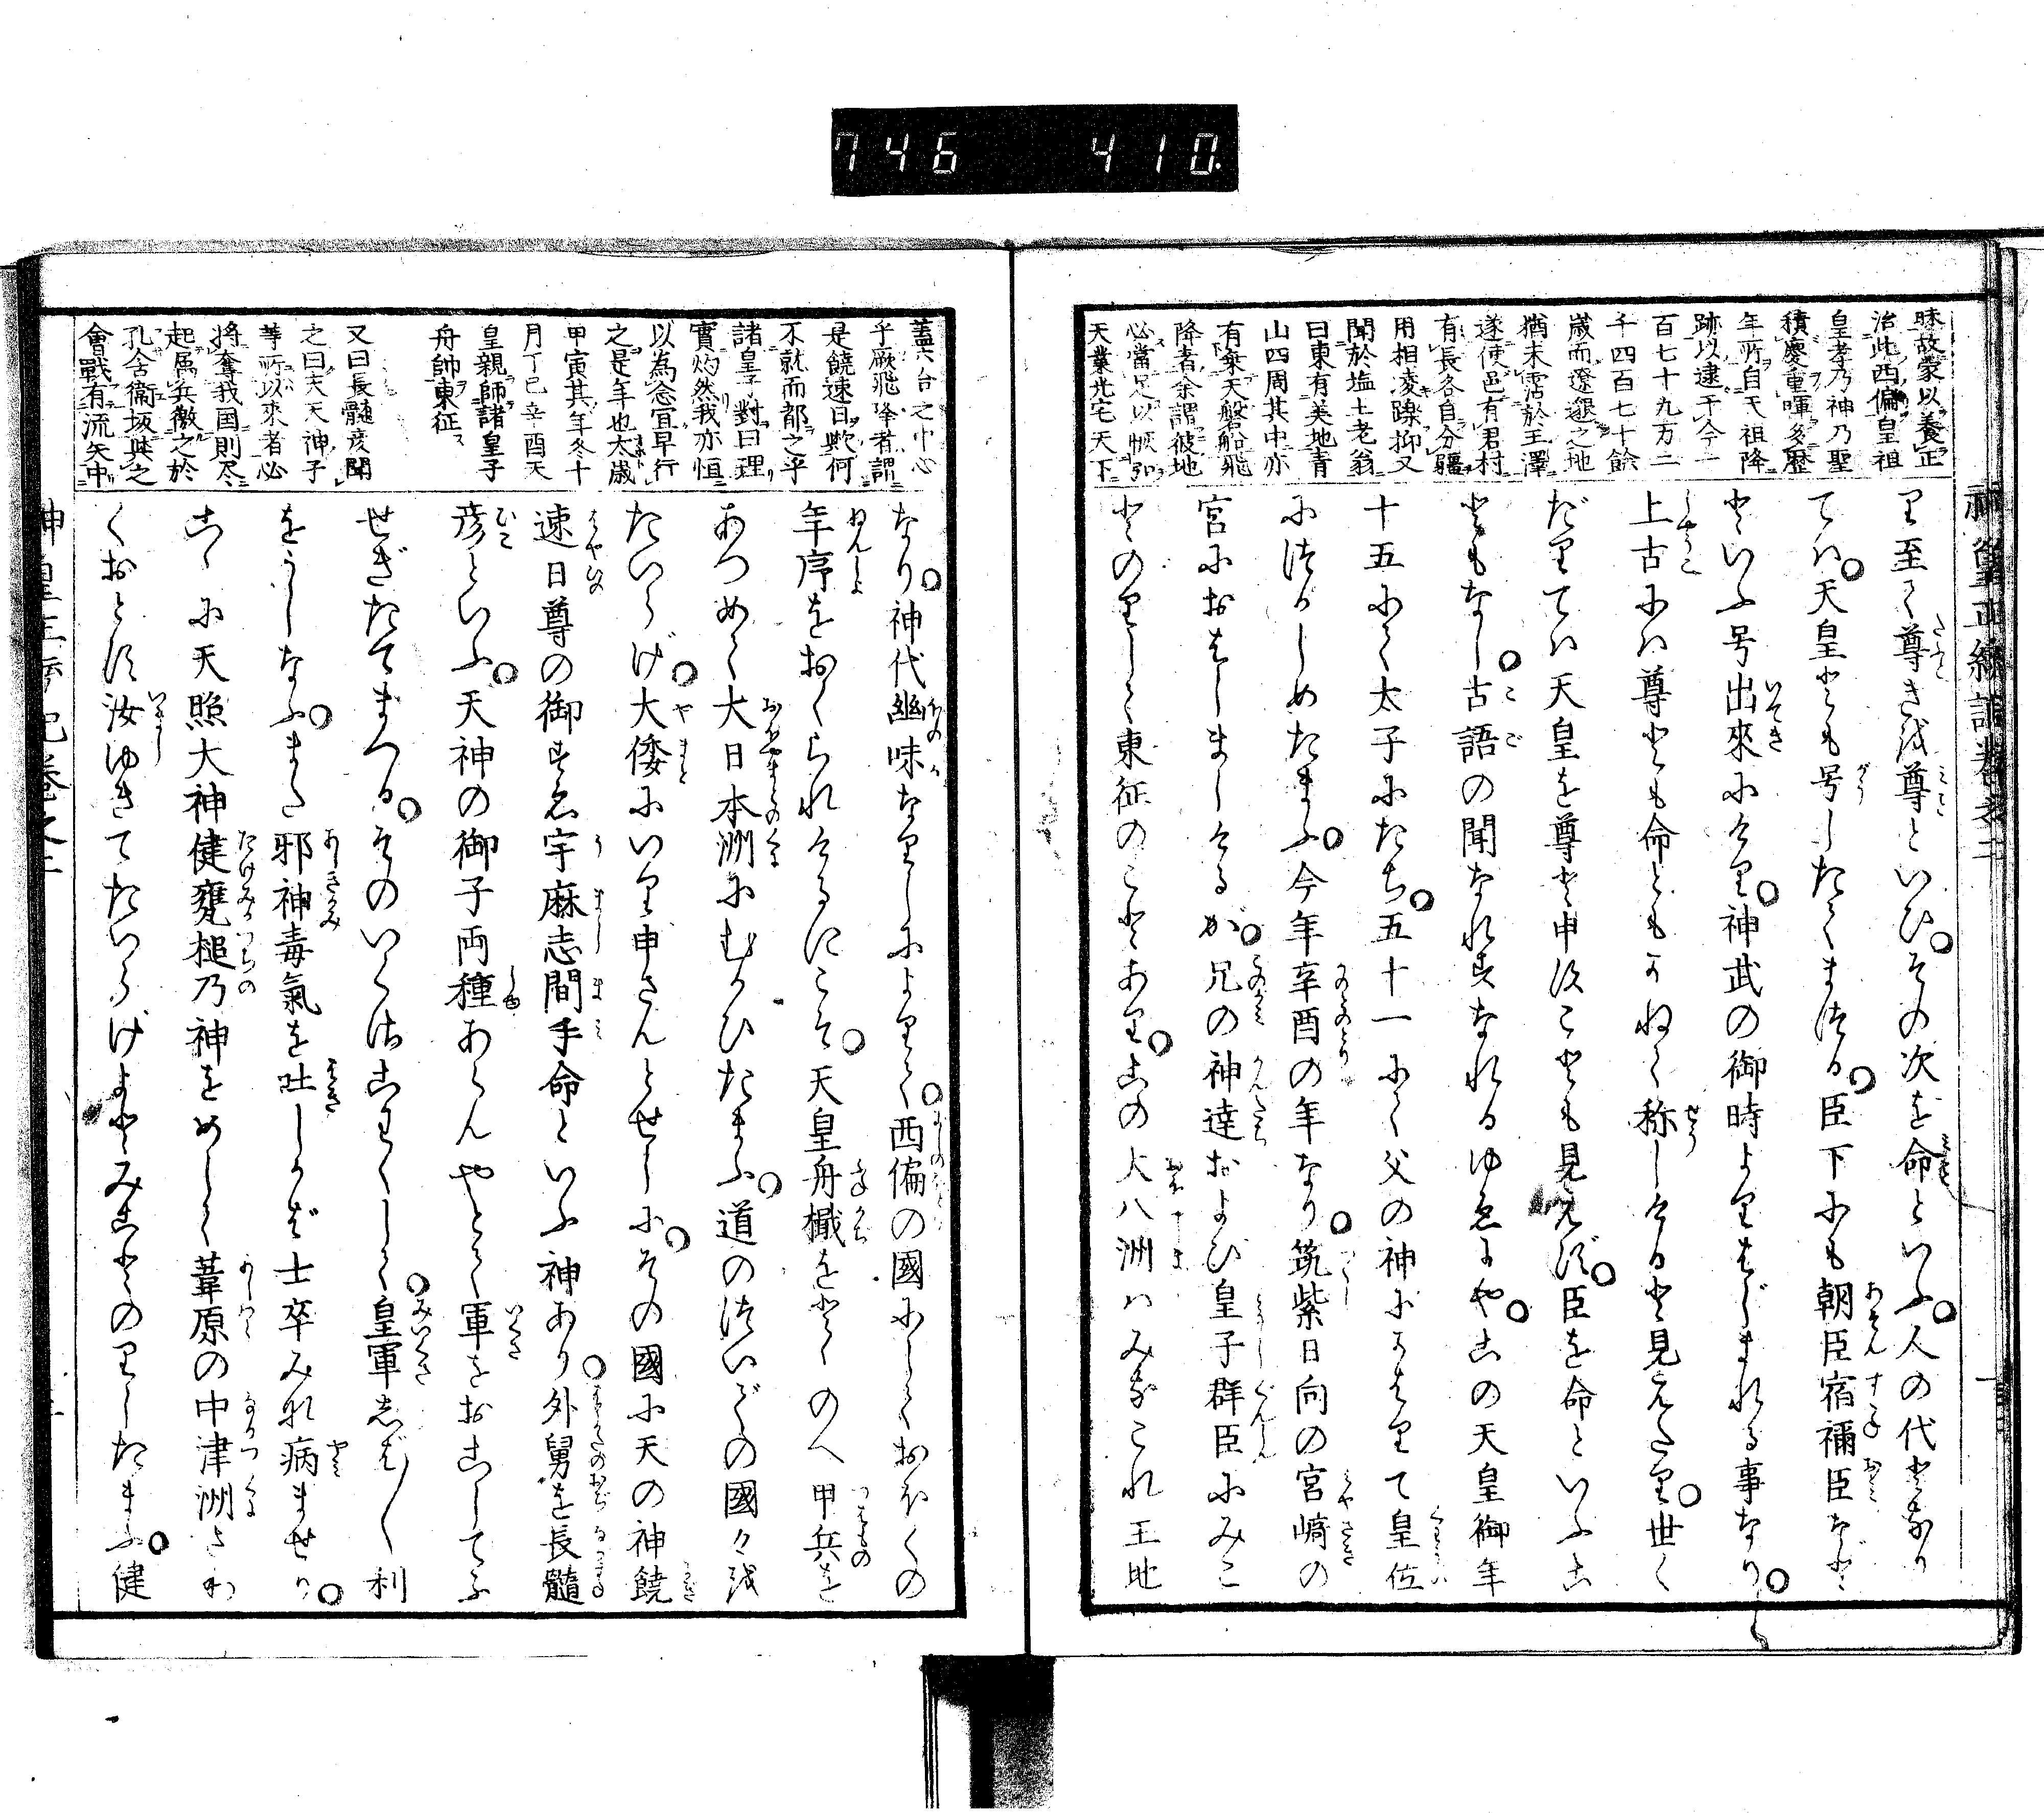 746 410.
昧故蒙以養正
治此西偏皇祖
皇考乃神乃聖
積慶重暉多歴
年所自天祖降
跡以逮于今一
百七十九万二
千四百七十餘
歳而遼邈之地
猶未霑於王澤
遂使邑有君村
有長各自分疆
用相凌躒抑又
聞於塩土老翁
曰東有美地青
山四周其中亦
有乗天磐船飛
降者余謂彼地
必當足以恢弘
天業光宅天下
り至て尊きを尊といひ。その次を命といふ。人の代となり
ては。天皇とも号したてまつる。臣下にも朝臣宿禰臣など
といふ号出來にけり。神武の御時よりはじまれる事なり。
上古には尊とも命ともかねて称しけると見えたり。世く
だりては天皇を尊と申すことも見えず。臣を命といふこ
ともなし。古語の聞なれずなれるゆゑにや。この天皇御年
十五にて太子にたち。五十一にて父の神にかはりて皇位
につかしめたまふ。今年辛酉の年なり。筑紫日向の宮崎の
宮におはしましけるが。兄の神達および皇子群臣にみこ
とのりして東征のことあり。この大八洲はみなこれ王地
蓋六合之中心
乎厥飛降者謂
是饒速日歟何
不就而都之乎
諸皇子對曰理
實灼然我亦恒
以為念宜早行
之是年也太歳
甲寅其年冬十
月丁巳辛酉天
皇親師諸皇子
舟帥東征
又曰長髄彦聞
之曰夫天神子
等所以來者必
将奪我国則尽
起属兵徼之於
孔舎衞坂與之
會戰有流矢中
なり。神代幽昧なりしによりて。西偏の國にしておほくの
年序をおくられけるにこそ。天皇舟檝をとゝのへ甲兵を
あつめて大日本洲にむかひたまふ。道のついでの國々を
たいらげ。大倭にいり申さんとせしに。その國に天の神饒
速日尊の御すゑ宇麻志間手命といふ神あり。外舅を長髓
彦といふ。天神の御子両種あらんやとて軍をおこしてふ
せぎたてまつる。そのいくさこはくして。皇軍しば〳〵利
をうしなふ。また邪神毒氣を吐しかば士卒みな病ませり。
こゝに天照大神健甕槌乃神をめして葦原の中津洲さわ
くおとす汝ゆきてたいらげよとみことのりしたまふ。健